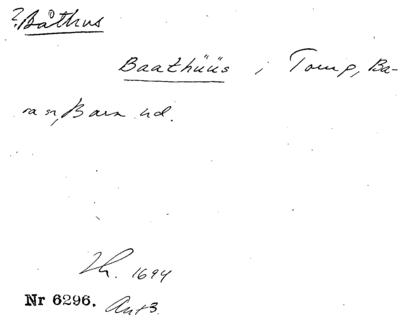 ? Båthus
Baathüüs i Torup, Ba-
ra sn, Bara hd.
Th. 1694
Nr 6296. Ant 3.